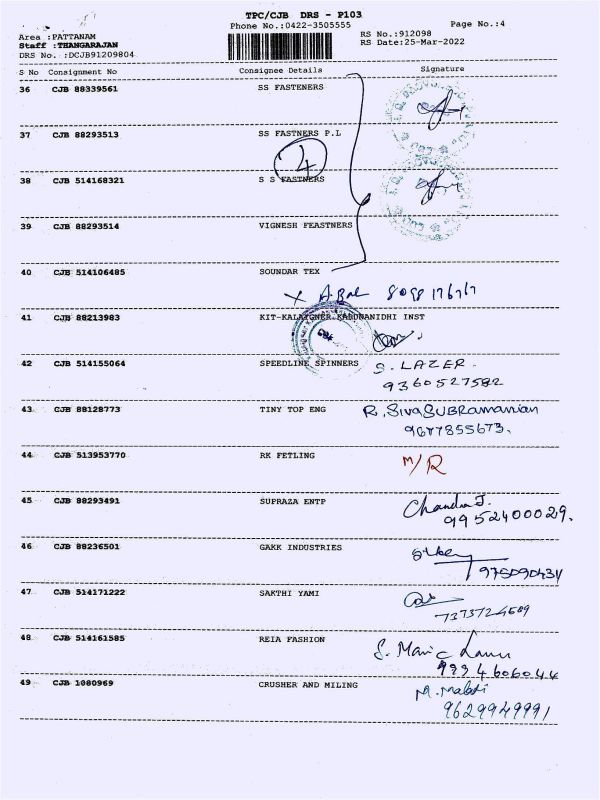 TPC/CJB DRS - P103
Phone No.:0422-3505555 Page No.:4
Area :PATTANAM RS No.:912098
Staff :THANGARAJAN RS Date:25-Mar-2022
DRS No. :DCJB91209804
S No Consignment No Consignee Details Signature
36 CJB 88339561 SS FASTENERS
37 CJB 88293513 SS FASTNERS P.L
38 CJB 514168321 S S FASTNERS
39 CJB 88293514 VIGNESH FEASTNERS
40 CJB 514106485 SOUNDAR TEX
41 CJB 88213983 KIT-KALAYGNER KARUNANIDHI INST
42 CJB 514155064 SPEEDLINE SPINNERS S. LAZER.
9360527582
43 CJB 88128773 TINY TOP ENG R. SIVASUBRamanian
9677855673.
44 CJB 513953770 RK FETLING M/R
45 CJB 88293491 SUPRAZA ENTP Chandra J.
9952400029.
46 CJB 88236501 GAKK INDUSTRIES
47 CJB 514171222 SAKTHI YAMI
7373724509
48 CJB 514161585 REIA FASHION
9994606044
49 CJB 1080969 CRUSHER AND MILING M. Malati
9629949991